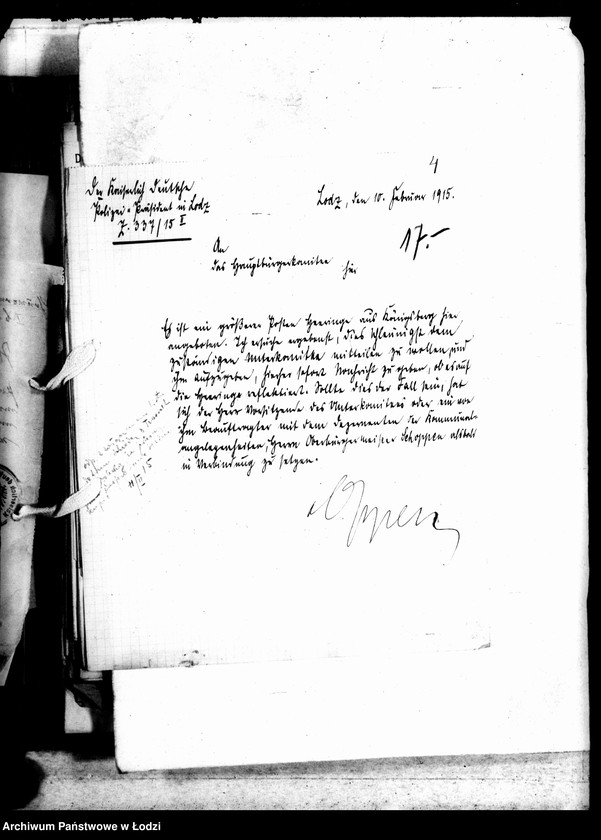 4
Der Kaiserlich Deutsche
Polizei-Präsident in Lodz
Z. 337/15 I
Lodz, den 10. Februar 1915.
17.-
An
das Hauptbürgerkomitee
hier
Es ist ein größerer Posten Heeringe aus Königsberg hier
angeboten. Ich ersuche ergebenst, dies schleunigst dem
zuständigen Unterkomitee mitteilen zu wollen und
ihm aufzugeben, hierher sofort Nachricht zu geben, ob es auf
die Heeringe reflektiert. Sollte dies der Fall sein, hat
sich der Herr Vorsitzende des Unterkomitees oder ein von
ihm Beauftragter mit dem Dezernenten der Kommunal-
angelegenheiten, Herrn Oberbürgermeister Schoppen alsbald
in Verbindung zu setzen.
Oppen
11/II 15
Archiwum Państwowe w Łodzi